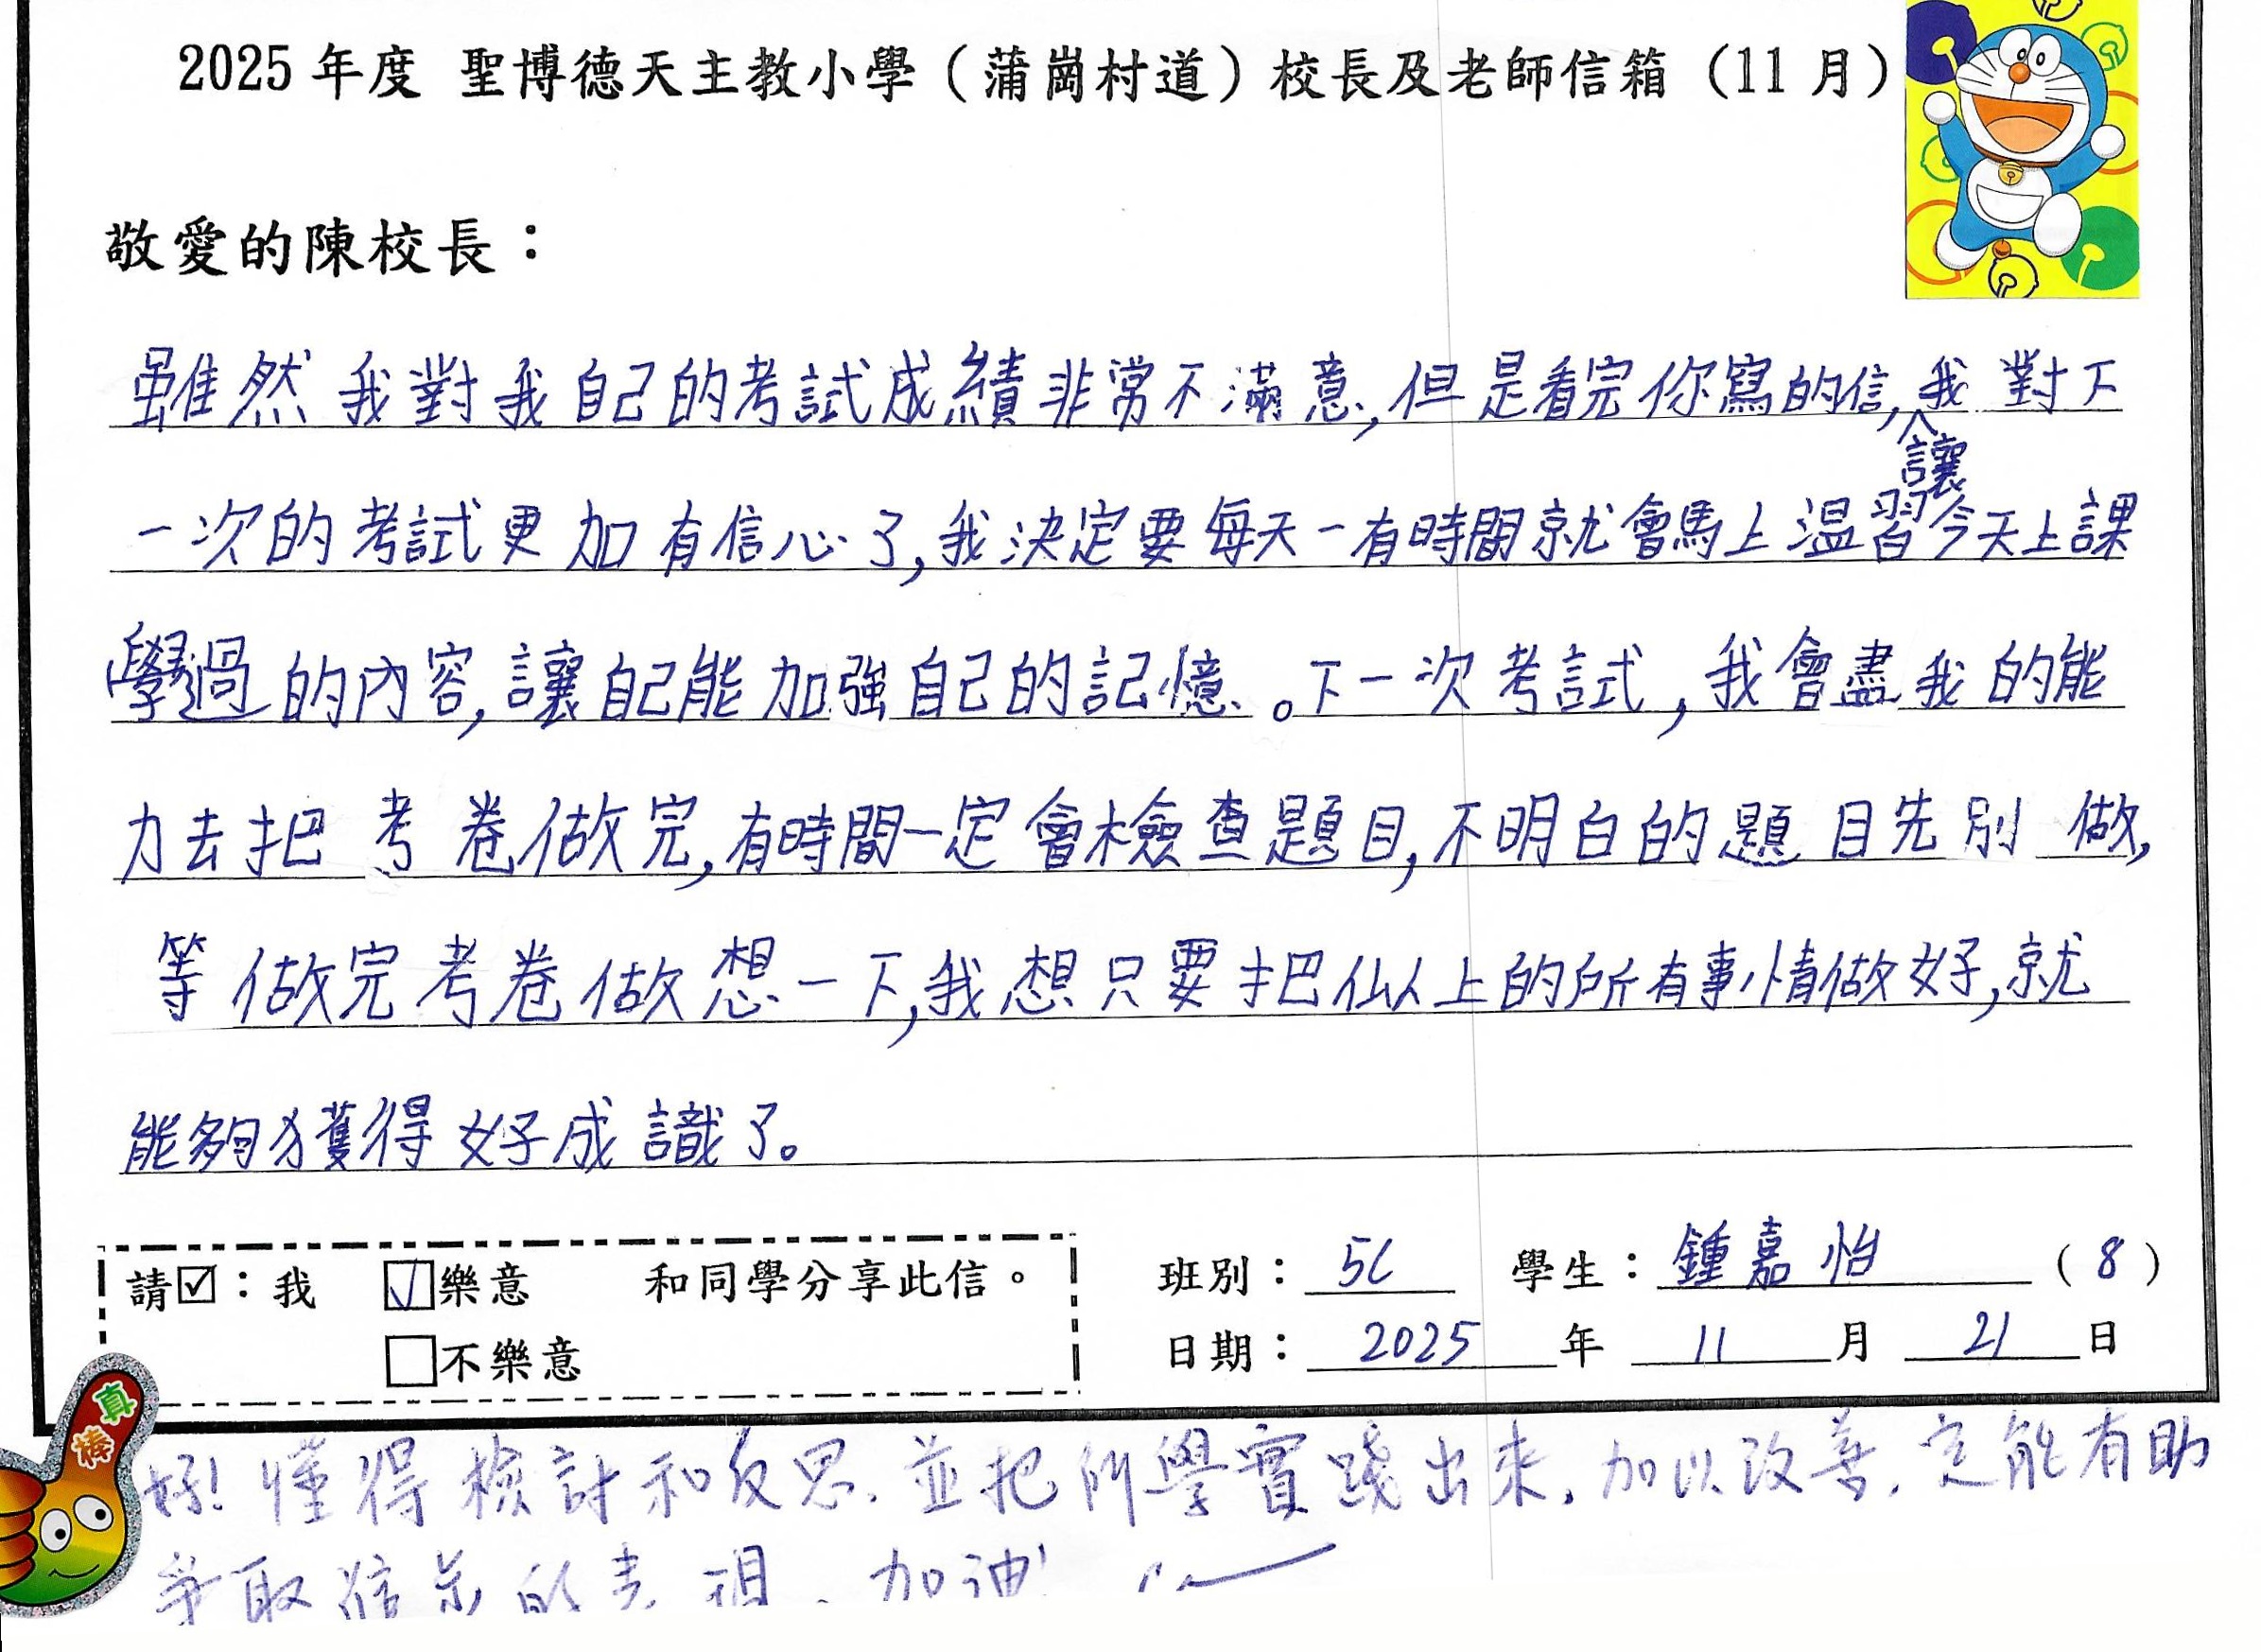 2025 年度 聖博德天主教小學（蒲崗村道）校長及老師信箱（11 月）
敬愛的陳校長：
雖然我對我自己的考試成績非常不滿意,但是看完你寫的信,讓我對下
一次的考試更加有信心了,我決定要每天一有時間就會馬上溫習今天上課
學過的內容,讓自己能加強自己的記憶。下一次考試,我會盡我的能
力去把考卷做完,有時間一定會檢查題目,不明白的題目先別做,
等做完考卷做想一下,我想只要把以上的所有事情做好,就
能夠獲得好成識了。
請☑：我 ☑樂意 和同學分享此信。
☐不樂意
班別：5C 學生：鍾嘉怡（8）
日期：2025年11月21日
真棒
好!懂得檢討和反思、並把所學實踐出來,加以改善,定能有助
爭取 的表現、加油!